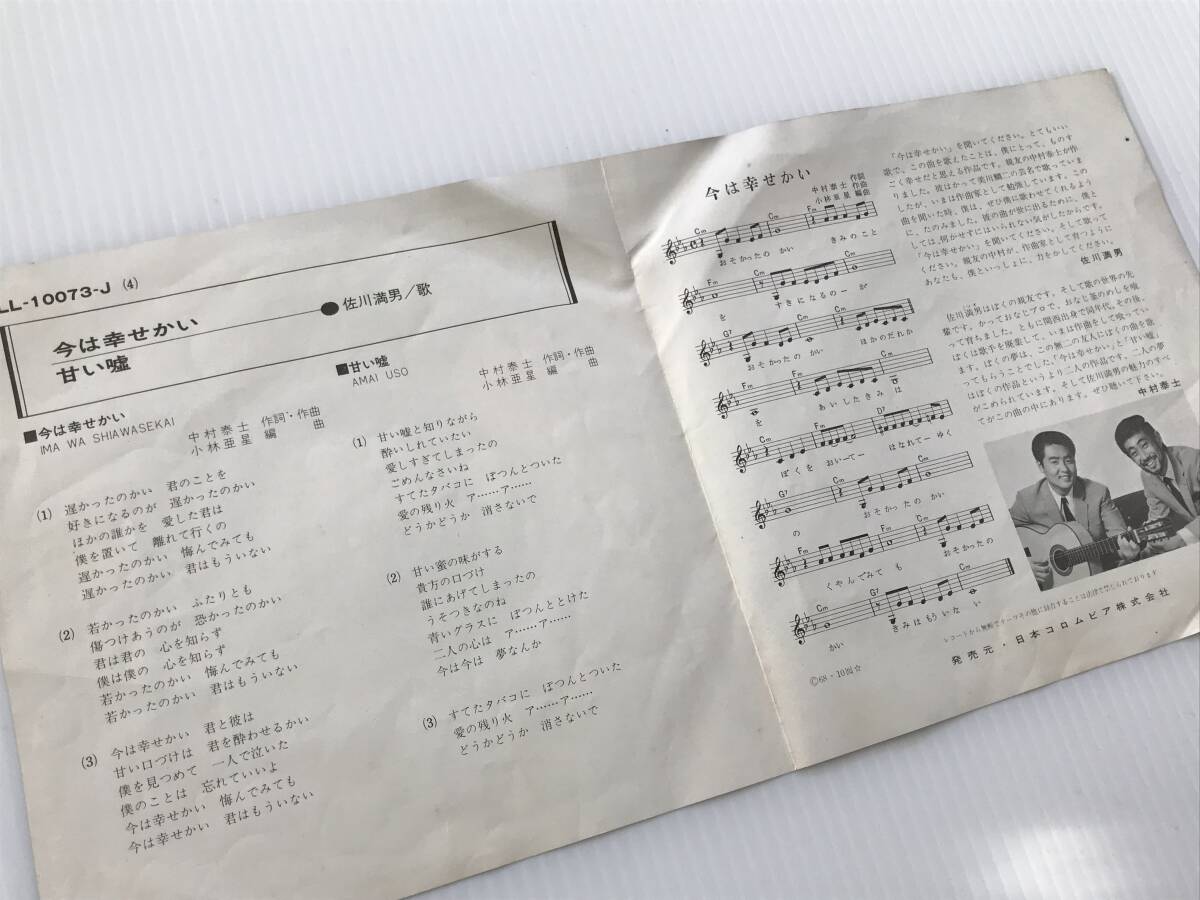 LL-10073-J (4)
今は幸せかい
甘い嘘
●佐川満男/歌
■今は幸せかい
IMA WA SHIAWASEKAI
中村泰士 作詞・作曲
小林亜星 編曲
(1) 遅かったのかい 君のことを
好きになるのが 遅かったのかい
ほかの誰かを 愛した君は
僕を置いて 離れて行くの
遅かったのかい 悔んでみても
遅かったのかい 君はもういない
(2) 若かったのかい ふたりとも
傷つけあうのが 恐かったのかい
君は君の 心を知らず
僕は僕の 心を知らず
若かったのかい 悔んでみても
若かったのかい 君はもういない
(3) 今は幸せかい 君と彼は
甘い口づけは 君を酔わせるかい
僕を見つめて 一人で泣いた
僕のことは 忘れていいよ
今は幸せかい 悔んでみても
今は幸せかい 君はもういない
■甘い嘘
AMAI USO
中村泰士 作詞・作曲
小林亜星 編曲
(1) 甘い嘘と知りながら
酔いしれていたい
愛しすぎてしまったの
ごめんなさいね
すてたタバコに ぽつんとついた
愛の残り火 ア……ア……
どうかどうか 消さないで
(2) 甘い蜜の味がする
貴方の口づけ
誰にあげてしまったの
うそつきなのね
青いグラスに ぽつんととけた
二人の心は ア……ア……
今は今は 夢なんか
(3) すてたタバコに ぽつんとついた
愛の残り火 ア……ア……
どうかどうか 消さないで
今は幸せかい
中村泰士 作詞
作曲
小林亜星 編曲
Cm Fm Cm Fm
おそかったの かい きみのこと
Fm Cm
を すきになるの ー が
G7 Cm
おそかったの かい ほかのだれか
Fm Fm
を あいしたきみ は
Cm D7
ぼくを おいー てー はなれてー ゆく
G7 Cm
の おそかったの かい
Fm Cm
くやんでみて も おそかったの
Cm G7 Cm
かい きみはもういな い
「今は幸せかい」を聞いてください。とてもいい
歌で、この曲を歌えたことは、僕にとって、ものす
ごく幸せだと思える作品です。親友の中村泰士が作
りました。彼はかって美川鯛二の芸名で歌っていま
したが、いまは作曲家として勉強しています。この
曲を聞いた時、僕は、ぜひ僕に歌わせてくれるよう
に、たのみました。彼の曲が世に出るために、僕と
しては、何かせずにはいられない気がしたからです。
「今は幸せかい」を聞いてください。そして歌って
ください。親友の中村が、作曲家として育つように
あなたも、僕といっしょに、力をかしてください。
佐川満男
佐川満男はぼくの親友です。そして歌の世界の先
輩です。かっておなじプロで、おなじ釜のめしを喰
って育ちました。ともに関西出身で同年代。その後、
ぼくは歌手を廃業して、いまは作曲をして喰ってい
ます。ぼくの夢は、この無二の友人にぼくの曲を歌
ってもらうことでした。「今は幸せかい」と「甘い嘘」
はぼくの作品というより二人の作品です。二人の夢
がこめられています。そして佐川満男の魅力のすべ
てがこの曲の中にあります。ぜひ聴いて下さい。
中村泰士
レコードから無断でテープその他に録音することは法律で禁じられております
発売元・日本コロムビア株式会社